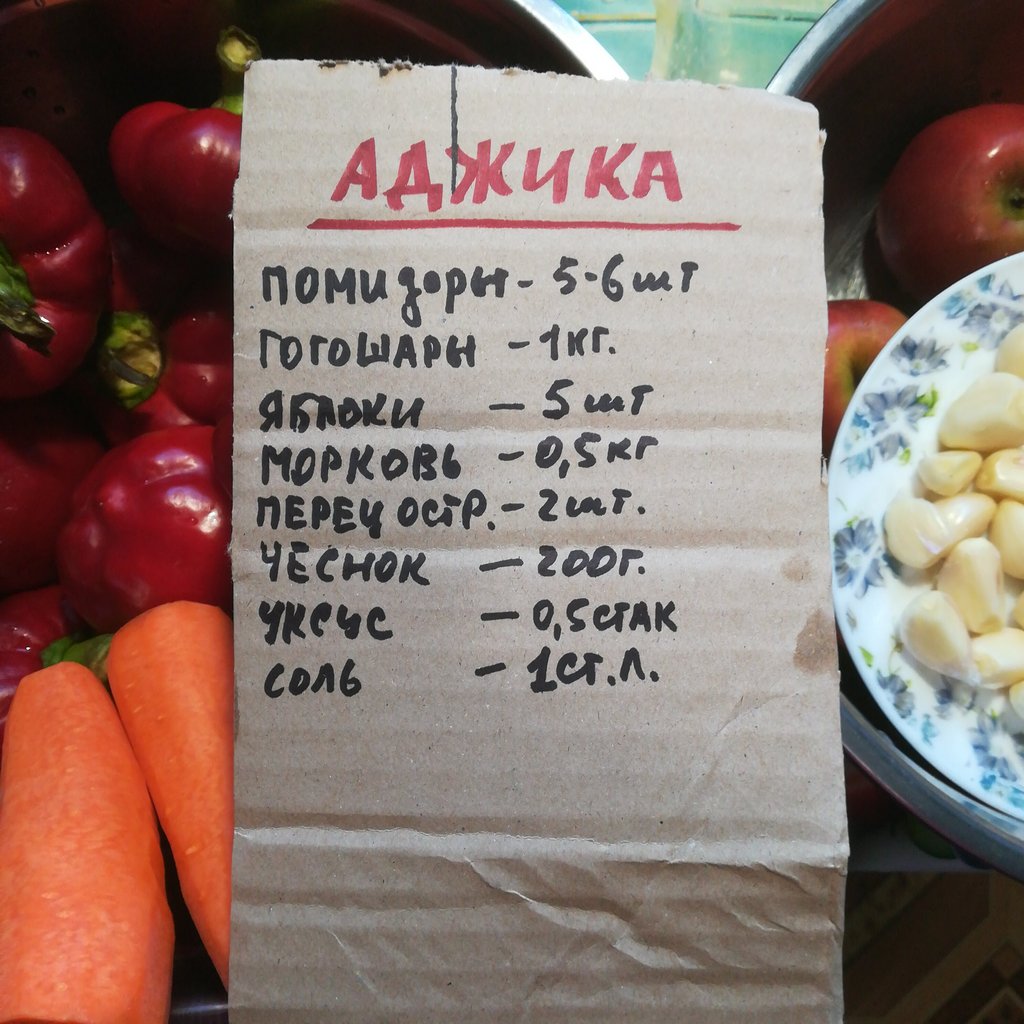 АДЖИКА
ПОМИДОРЫ - 5-6 ШТ
ГОГОШАРЫ - 1 КГ.
ЯБЛОКИ - 5 ШТ
МОРКОВЬ - 0,5 КГ
ПЕРЕЦ ОСТР. - 2 ШТ.
ЧЕСНОК - 200 Г.
УКСУС - 0,5 СТАК
СОЛЬ - 1 СТ.Л.